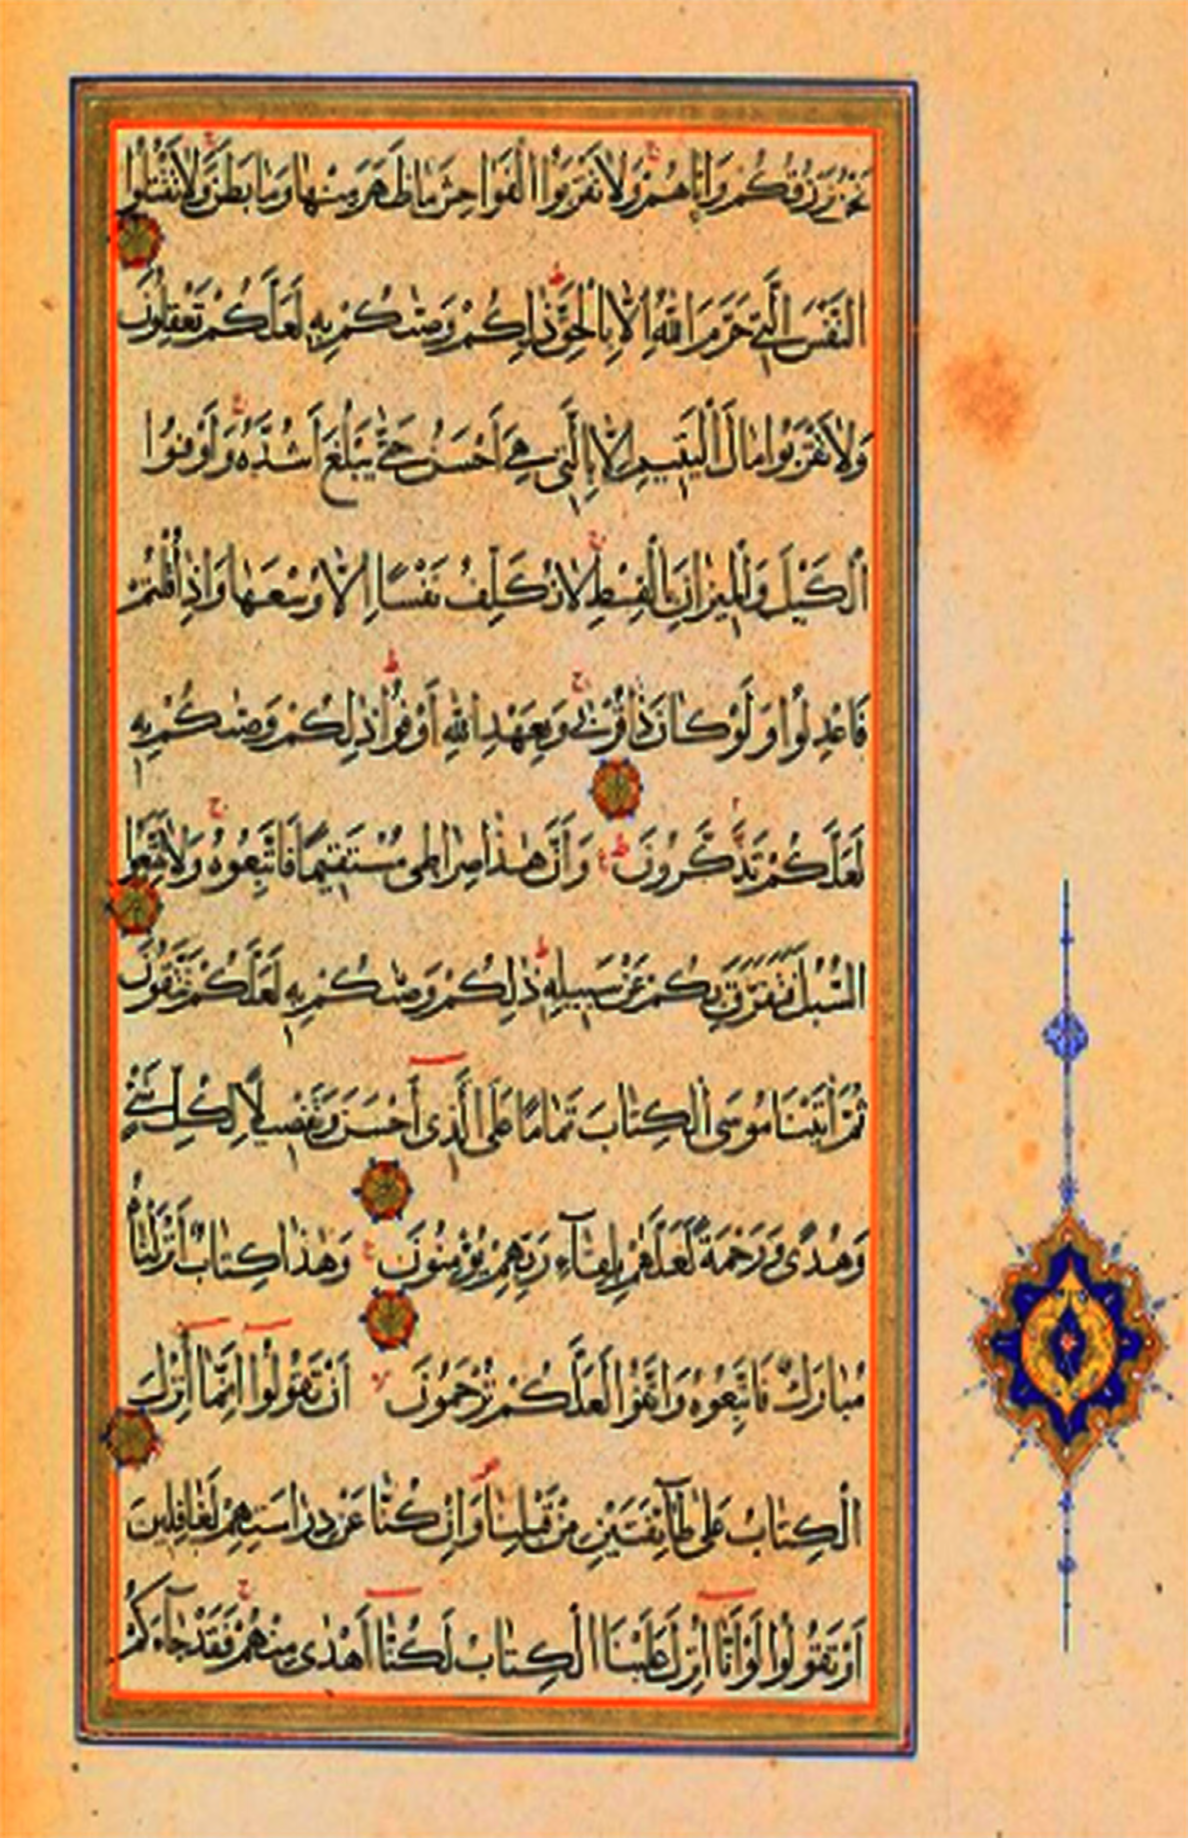 نَحْنُ نَرْزُقُكُمْ وَاِيَّاهُمْ وَلَا تَقْرَبُوا الْفَوَاحِشَ مَا ظَهَرَ مِنْهَا وَمَا بَطَنَ وَلَا تَقْتُلُوا
النَّفْسَ الَّتِي حَرَّمَ اللّٰهُ اِلَّا بِالْحَقِّ ذٰلِكُمْ وَصّٰىكُمْ بِهِ لَعَلَّكُمْ تَعْقِلُونَ
وَلَا تَقْرَبُوا مَالَ الْيَتِيمِ اِلَّا بِالَّتِي هِيَ اَحْسَنُ حَتّٰى يَبْلُغَ اَشُدَّهُ وَاَوْفُوا
الْكَيْلَ وَالْمِيزَانَ بِالْقِسْطِ لَا نُكَلِّفُ نَفْسًا اِلَّا وُسْعَهَا وَاِذَا قُلْتُمْ
فَاعْدِلُوا وَلَوْ كَانَ ذَا قُرْبٰى وَبِعَهْدِ اللّٰهِ اَوْفُوا ذٰلِكُمْ وَصّٰىكُمْ بِهِ
لَعَلَّكُمْ تَذَكَّرُونَ وَاَنَّ هٰذَا صِرَاطِي مُسْتَقِيمًا فَاتَّبِعُوهُ وَلَا تَتَّبِعُوا
السُّبُلَ فَتَفَرَّقَ بِكُمْ عَنْ سَبِيلِهِ ذٰلِكُمْ وَصّٰىكُمْ بِهِ لَعَلَّكُمْ تَتَّقُونَ
ثُمَّ اٰتَيْنَا مُوسَى الْكِتَابَ تَمَامًا عَلَى الَّذِي اَحْسَنَ وَتَفْصِيلًا لِكُلِّ شَيْءٍ
وَهُدًى وَرَحْمَةً لَعَلَّهُمْ بِلِقَاءِ رَبِّهِمْ يُؤْمِنُونَ وَهٰذَا كِتَابٌ اَنْزَلْنَاهُ
مُبَارَكٌ فَاتَّبِعُوهُ وَاتَّقُوا لَعَلَّكُمْ تُرْحَمُونَ اَنْ تَقُولُوا اِنَّمَا اُنْزِلَ
الْكِتَابُ عَلٰى طَائِفَتَيْنِ مِنْ قَبْلِنَا وَاِنْ كُنَّا عَنْ دِرَاسَتِهِمْ لَغَافِلِينَ
اَوْ تَقُولُوا لَوْ اَنَّا اُنْزِلَ عَلَيْنَا الْكِتَابُ لَكُنَّا اَهْدٰى مِنْهُمْ فَقَدْ جَاءَكُمْ